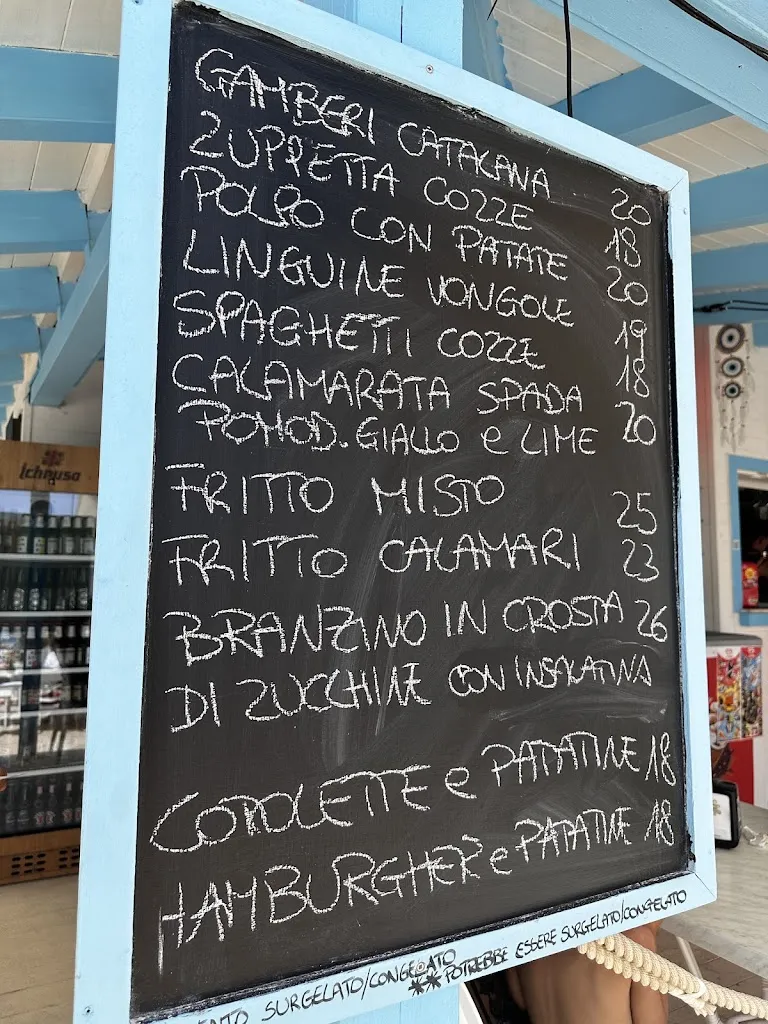 GAMBERI CATALANA 20
ZUPPETTA COZZE 18
POLPO CON PATATE 20
LINGUINE VONGOLE 19
SPAGHETTI COZZE 18
CALAMARATA SPADA 20
POMOD. GIALLO e LIME
FRITTO MISTO 25
FRITTO CALAMARI 23
BRANZINO IN CROSTA 26
DI ZUCCHINE CON INSALATINA
COTOLETTE e PATATINE 18
HAMBURGHER e PATATINE 18
SURGELATO/CONGELATO
** POTREBBE ESSERE SURGELATO/CONGELATO
Ichnusa